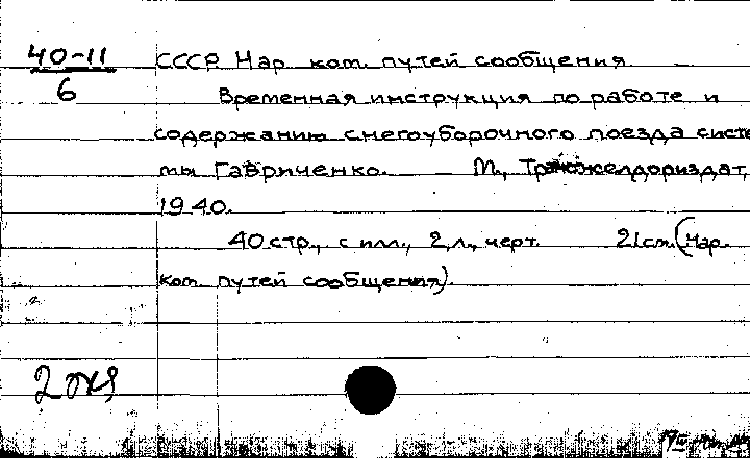 40-11
6
СССР. Нар. ком. путей сообщения.
Временная инструкция по работе и
содержанию снегоуборочного поезда систе
мы Гавриченко. М., Трансжелдориздат,
1940.
40 стр., с илл., 2 л., черт. 21 см. (Нар.
ком. путей сообщения).
2 экз